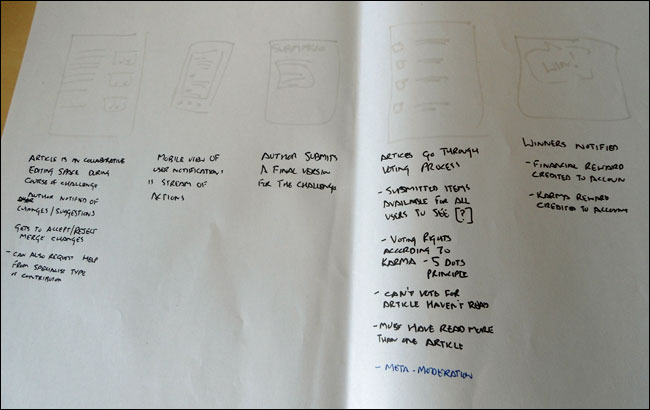 SUBMISSION
WIN!
ARTICLE IS IN COLLABORATIVE
EDITING SPACE DURING
COURSE OF CHALLENGE
AUTHOR NOTIFIED OF
CHANGES/SUGGESTIONS
GETS TO ACCEPT/REJECT
MERGE CHANGES
- CAN ALSO REQUEST HELP
FROM SPECIALISE TYPE
OF CONTRIBUTOR
MOBILE VIEW OF
USER NOTIFICATIONS
IS STREAM OF
ACTIONS
AUTHOR SUBMITS
A FINAL VERSION
FOR THE CHALLENGE
ARTICES GO THROUGH
VOTING PROCESS
- SUBMITTED ITEMS
AVAILABLE FOR ALL
USERS TO SEE [?]
- VOTING RIGHTS
ACCORDING TO
KARMA - 5 DOTS
PRINCIPLE
- CAN'T VOTE FOR
ARTICLE HAVEN'T READ
- MUST HAVE READ MORE
THAN ONE ARTICLE
- META-MODERATION
WINNERS NOTIFIED
- FINANCIAL REWARD
CREDITED TO ACCOUN
- KARMA REWARD
CREDITED TO ACCOUNT